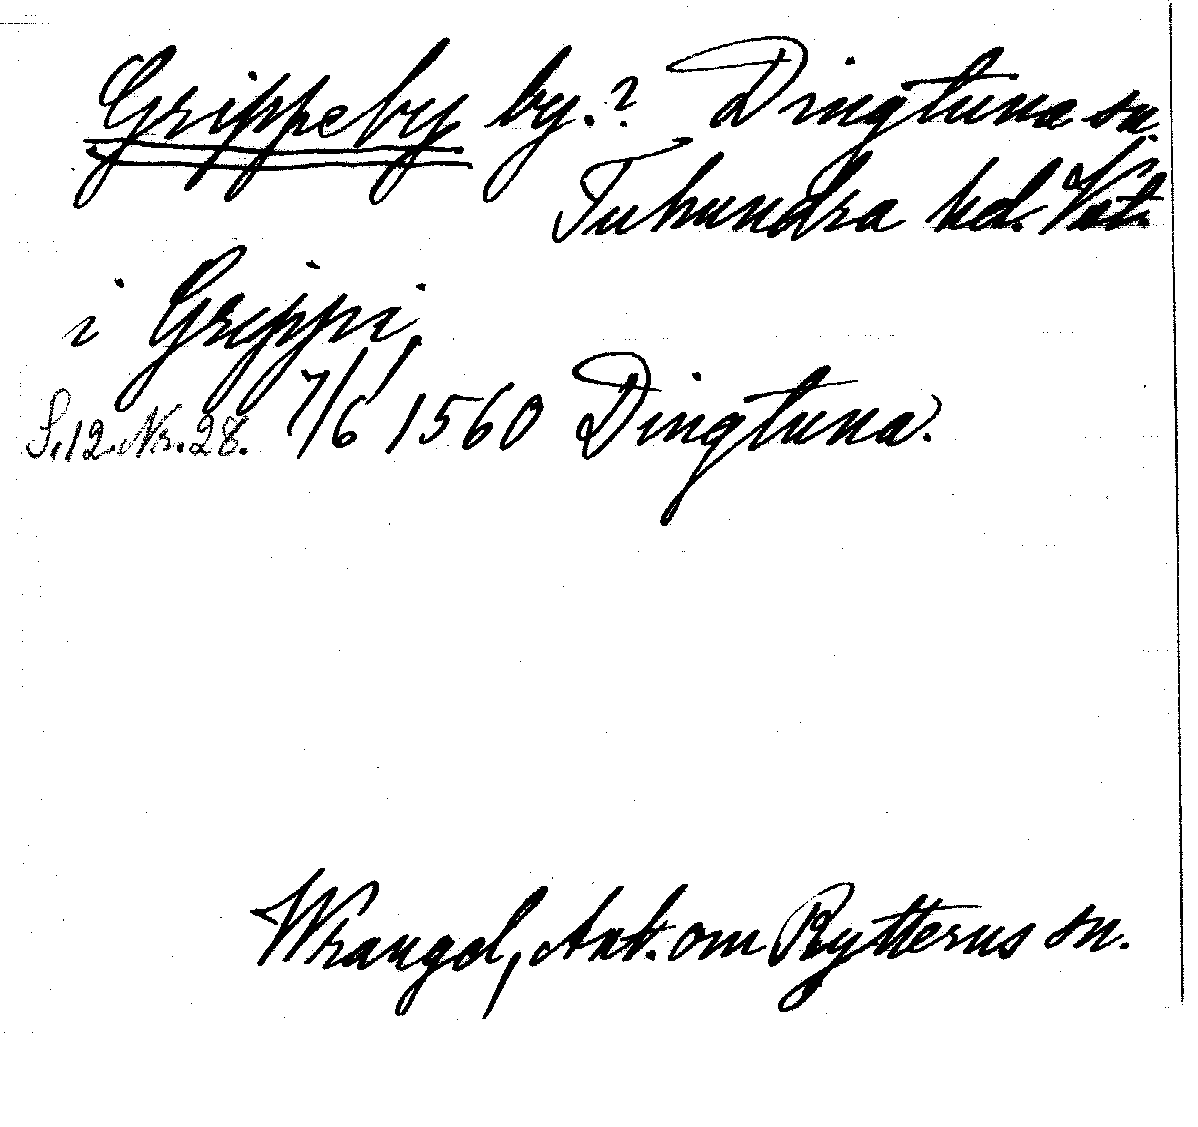 Grippeby by.? Dingtuna sn.
Tuhundra hd. Vstm.
i Grippi,
S. 12. Nr. 28. 7/6 1560 Dingtuna.
Wrangel, Ant. om Rytterns sn.